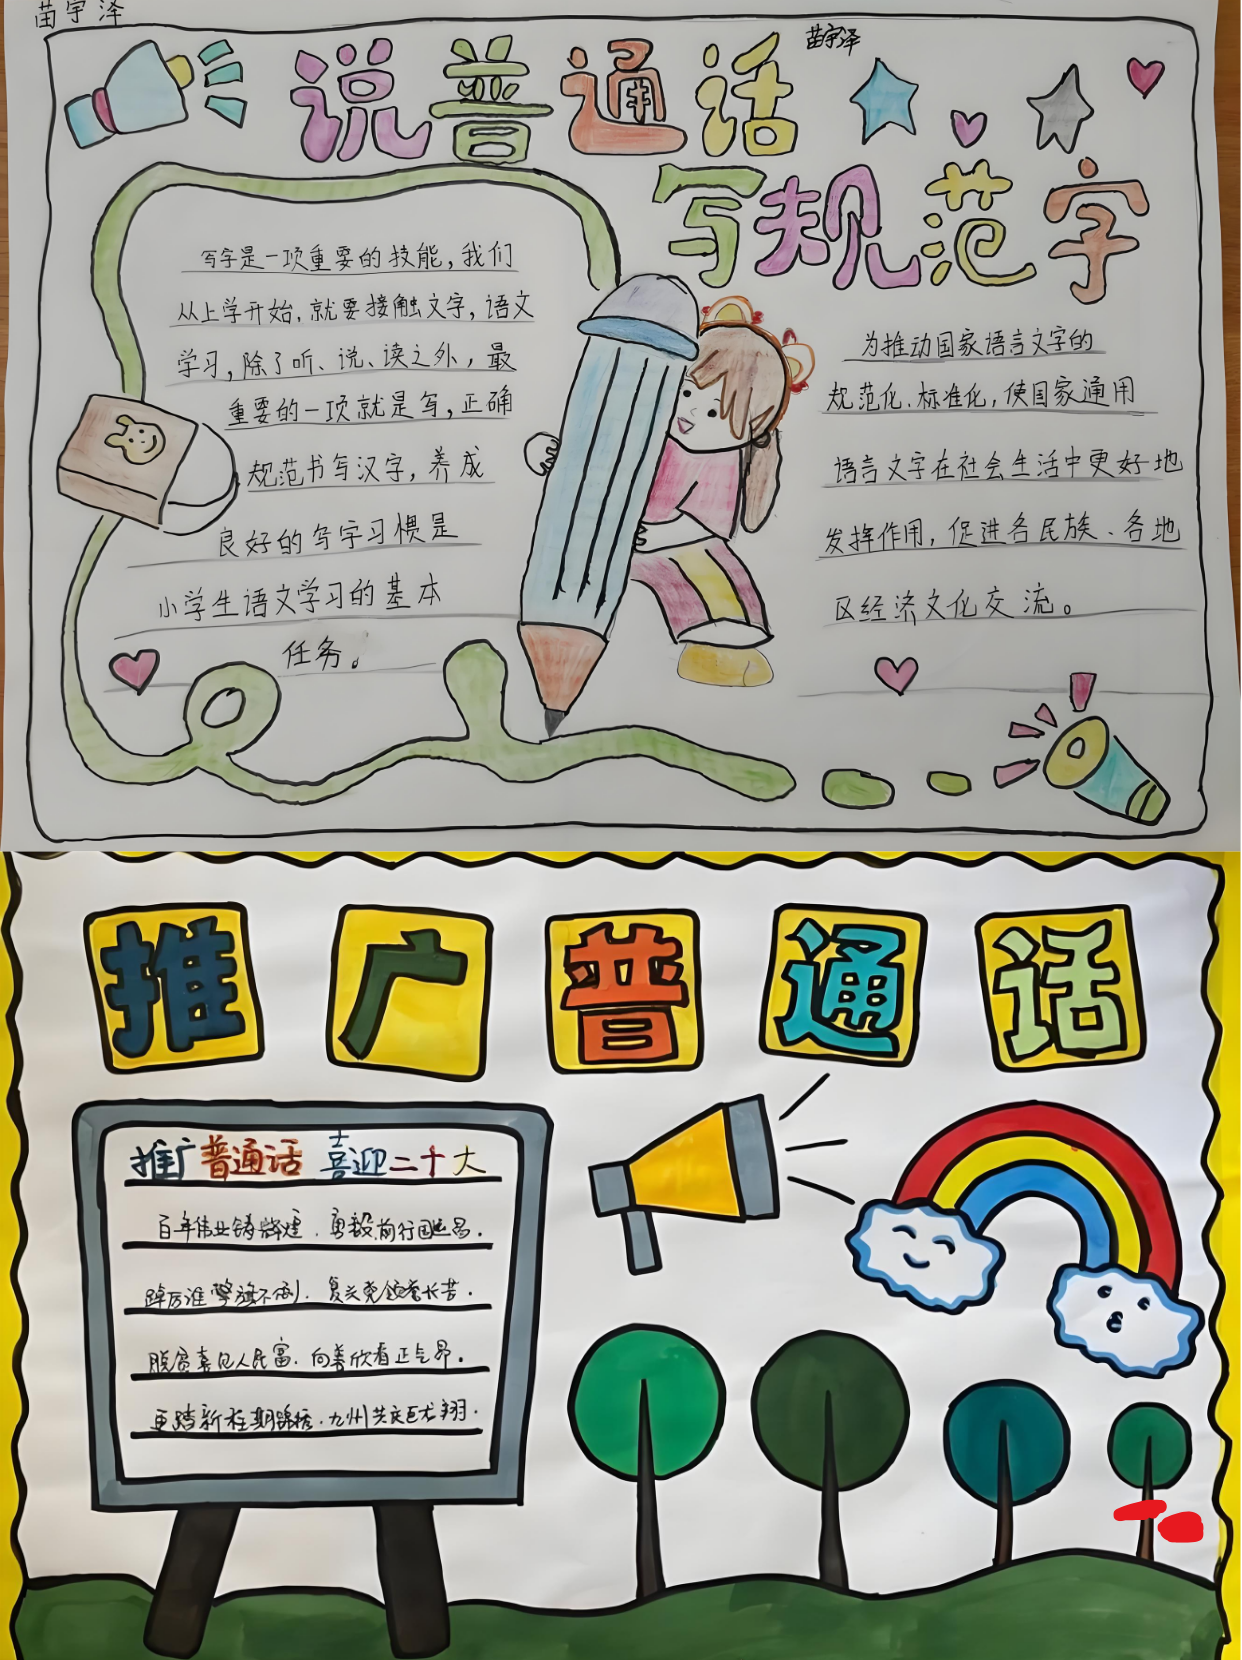 苗宇泽
苗宇泽
说普通话
写规范字
写字是一项重要的技能，我们
从上学开始，就要接触文字，语文
学习，除了听、说、读之外，最
重要的一项就是写，正确
规范书写汉字，养成
良好的写字习惯是
小学生语文学习的基本
任务。
为推动国家语言文字的
规范化、标准化，使国家通用
语言文字在社会生活中更好地
发挥作用，促进各民族、各地
区经济文化交流。
推广普通话
推广普通话 喜迎二十大
百年伟业铸辉煌．勇毅前行国运昌．
踔厉淮擎旗不倒．复兴党领奋长苦．
脱贫喜见人民富．向善欣看正气昂．
更跨新征期锦绣．九州共庆巨龙翔．